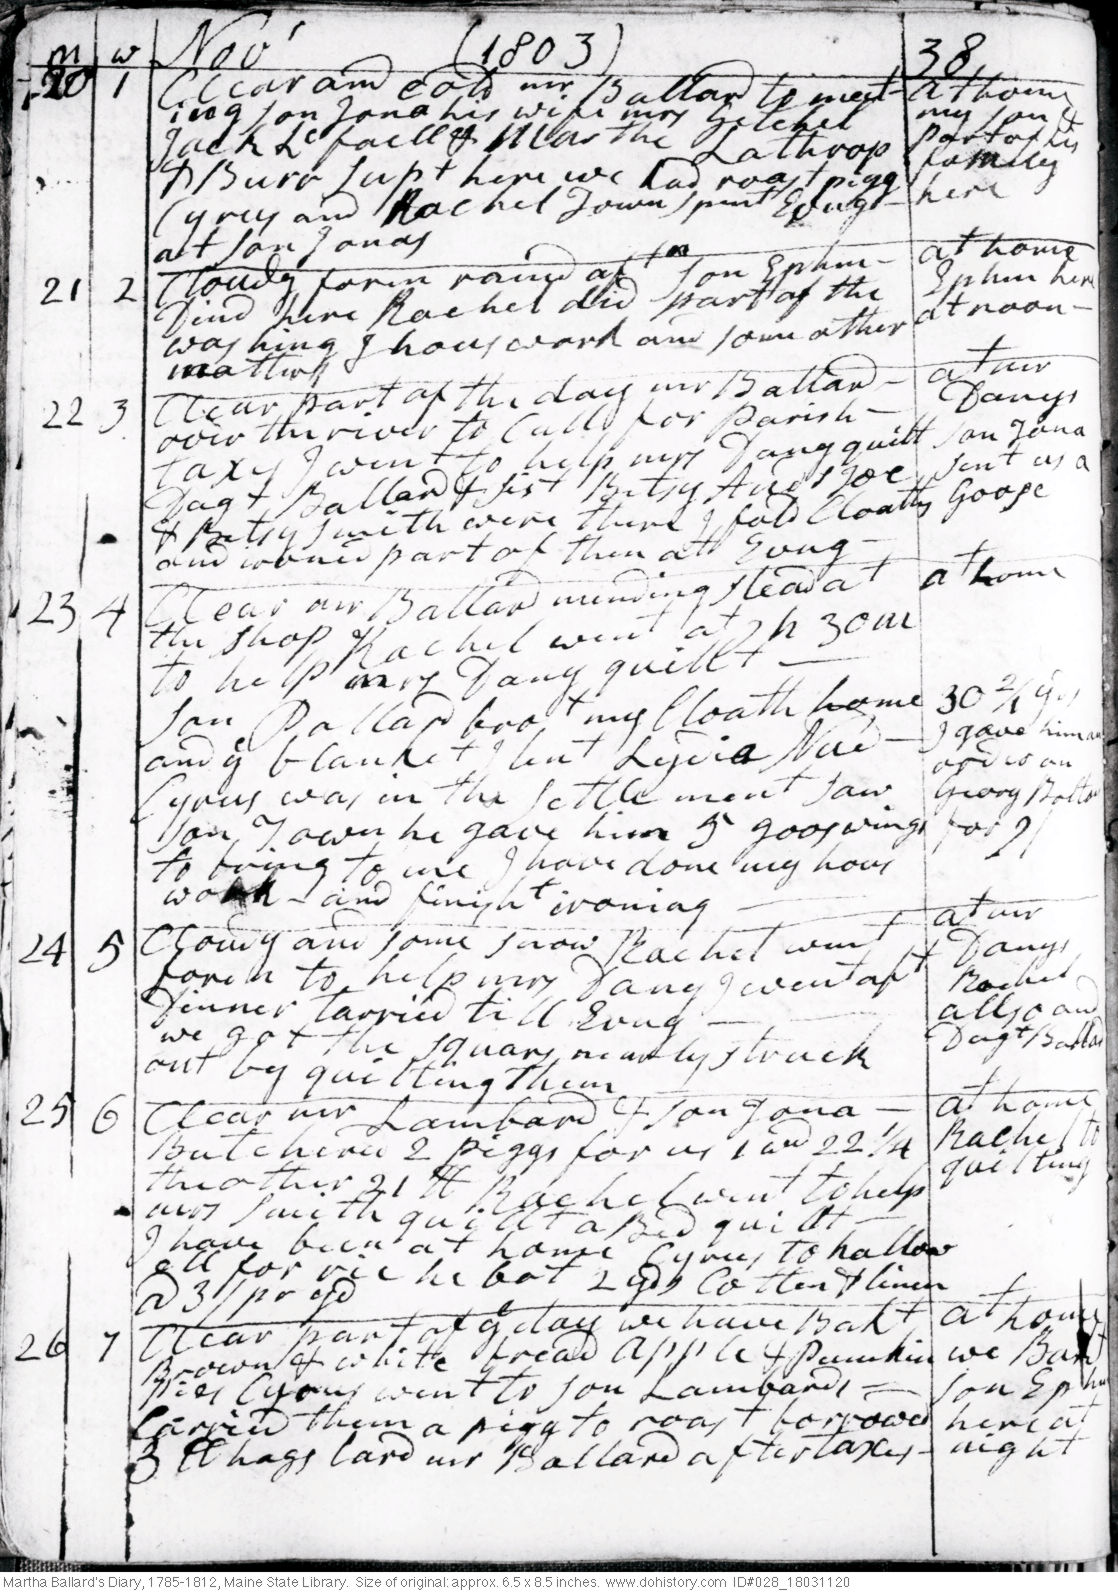 m w Nov^r (1803) 38
20 1 Clear and Cold mr Ballard to meet- at home
ing son Jona his wife mrs Getchel my son &
Jack Lc faell & Martha Lathrop part of his
& Burr Supt here we had roast pigg family
Cyrus and Rachel Town spent Evng- here
at son Jonas
21 2 Cloudy foren raind aftn son Ephm- at home
Dind here Rachel did part of the Ephm here
washing I hous work and some other at noon-
matters
22 3 Clear part of the day mr Ballard- at mr
over the river to Call for parish- Danys
taxes I went to help mrs Dany quilt son Jona
Dagt Ballard & sist Betsy And s Joe sent us a
& Betsy Smith were there I fold Cloaths Goose
and ironed part of them at Evng-
23 4 Clear mr Ballard minding slead at at home
the shop Rachel went at 2 h 30 m
to help mrs Dany quillt
son Pollard brot my Cloath home 30 2/4 yds
and ye blanket I lent Lydia Nud- I gave him an
Cyrus was in the settlement saw order on
son Town he gave him 5 gooswings Georg Bolton
to bring to me I have done my hous for 9/
work - and finisht ironing
24 5 Clowdy and some snow Rachel went at mr
foren to help mrs Dany I went aft Danys
Dinner tarried till Evng- Rachel
we got the squars nearly struck allso and
out by quilting them Dagt Ballad
25 6 Clear mr Lambard & son Jona- at home
Butchered 2 piggs for us 1 wd 22 1/4 Rachel to
the other 21 lb Rachel went to help quilting
mrs Smith quillt a Bed quillt-
I have been at home Cyrus to hallow
ell for rie he bot 2 yds Cotten & linen
@ 3/ pr yd
26 7 Clear part of ye day we have Bakt at home
Brown & white bread apple & Pumkin we Bakt
pies Cyrus went to son Lambards- son Ephm
Carried them a pigg to roast borrowed here at
3 lb hags lard mr Ballard after taxes- night
Martha Ballard's Diary, 1785-1812, Maine State Library. Size of original: approx. 6.5 x 8.5 inches. www.dohistory.com ID#028_18031120